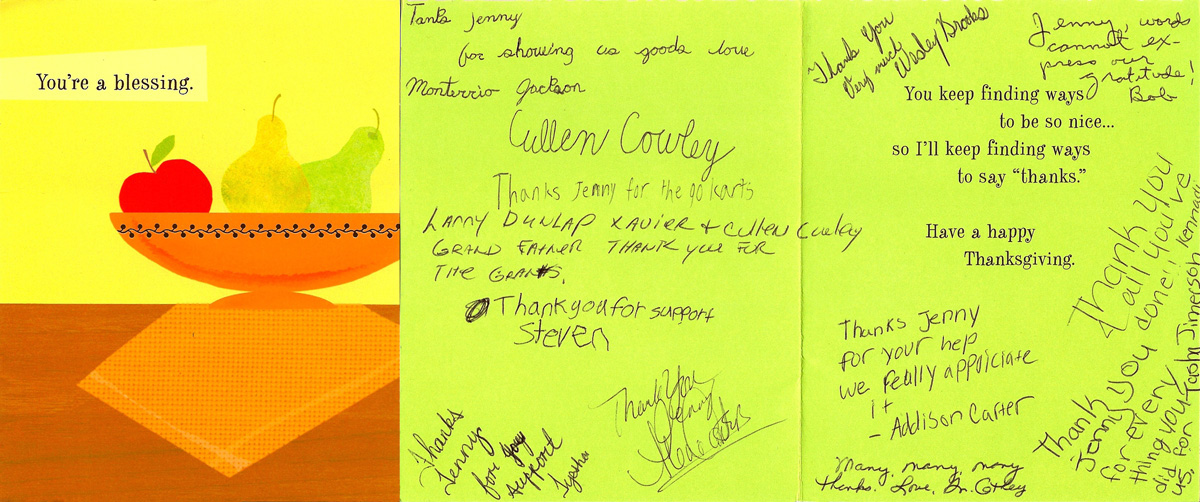 You're a blessing.
Tanks Jenny
for showing us goods love
Monterrio Jackson
Cullen Cowley
Thanks Jenny for the go karts
LARRY DUNLAP XAVIER + Cullen Cowley
GRAND FATHER THANK you FOR
THE GRANTS.
Thank you for support
Steven
Thanks
Jenny
for your
support
Thank You
Jenny
Thank You
Very much
Wesley Brooks
Jenny, words
cannot ex-
press our
gratitude!
Bob
You keep finding ways
to be so nice...
so I'll keep finding ways
to say “thanks.”
Have a happy
Thanksgiving.
Thanks Jenny
for your help
we really appriciate
it
- Addison Carter
Many, many, many
thanks. Love,
Thank you
all you've
done!!
Thank you
Jenny
for every
thing you
did for
us.
Jimerson